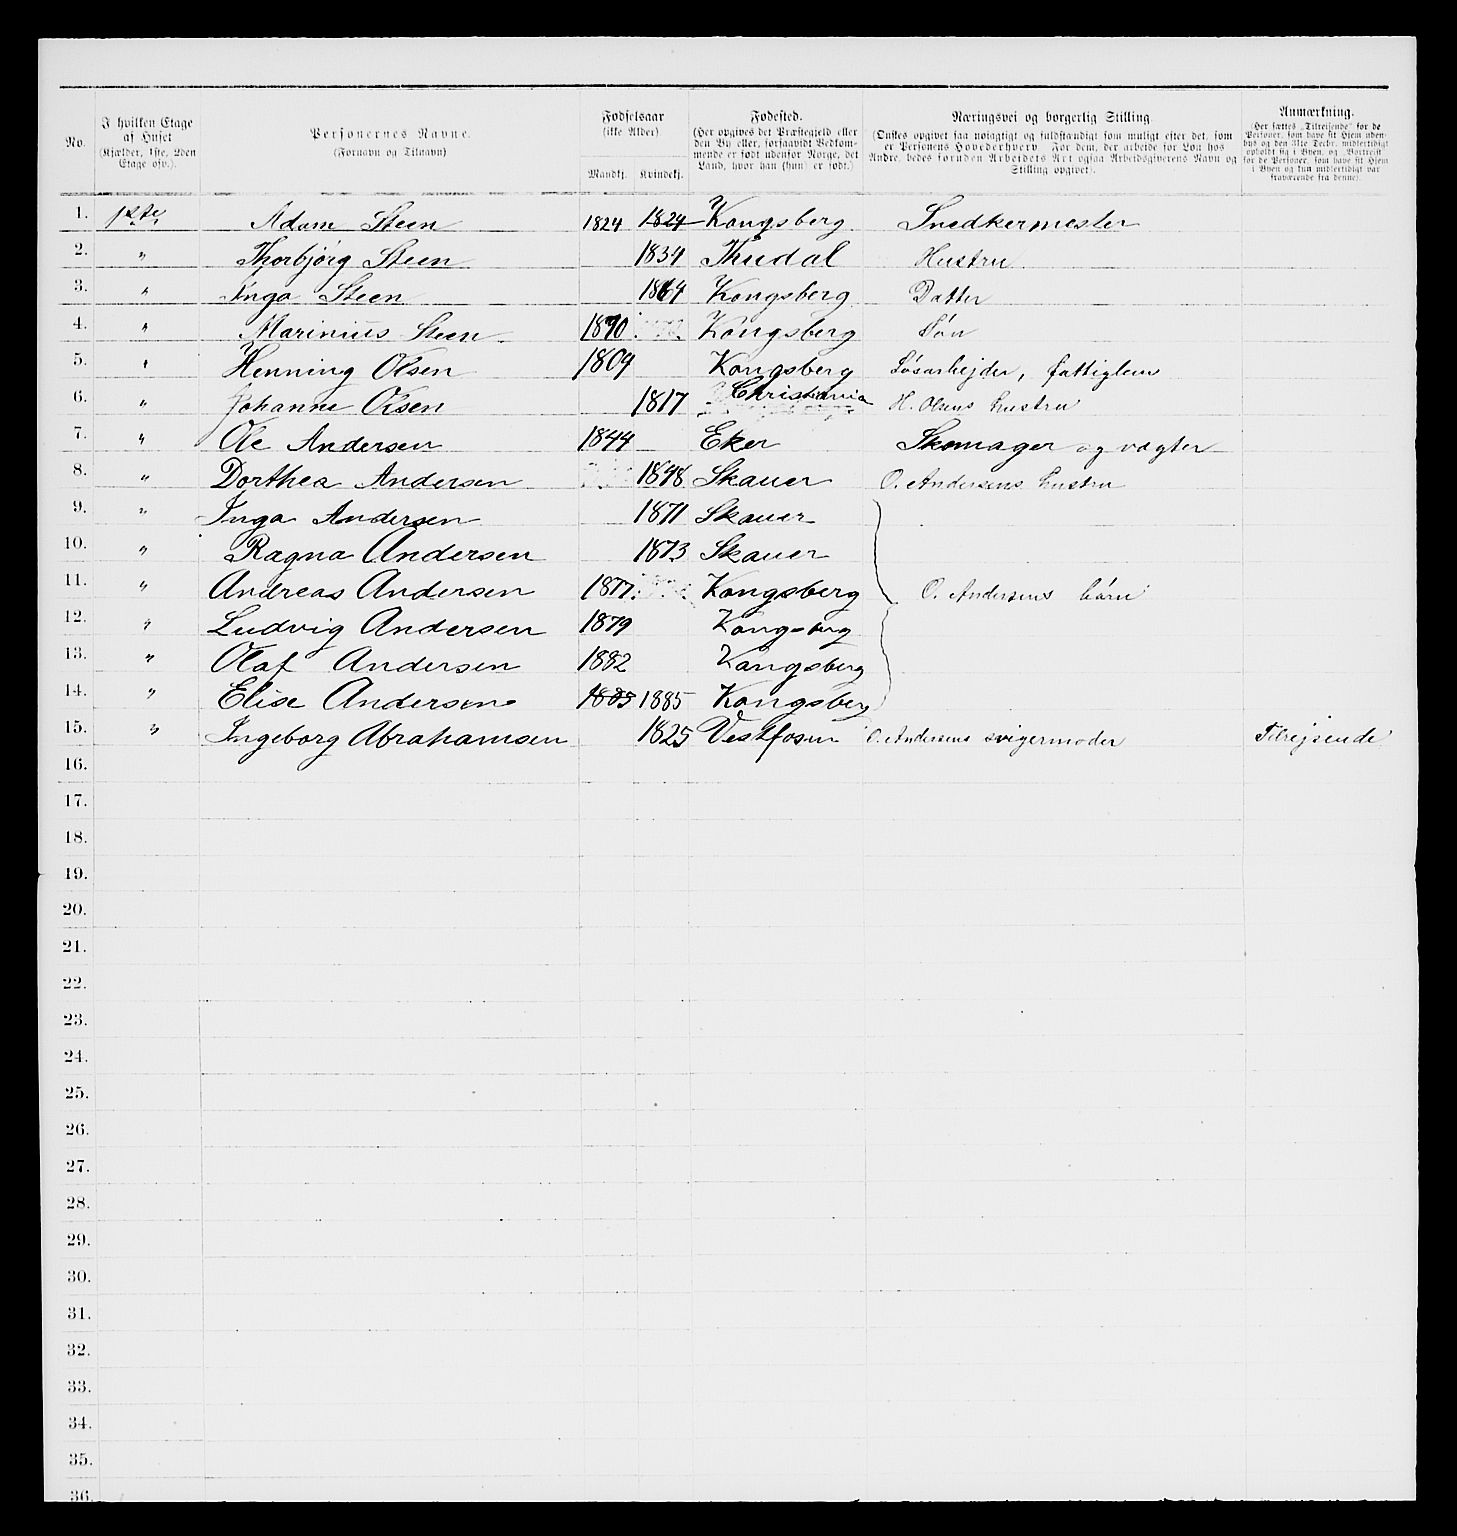 No.
I hvilken Etage af Huset (Kjælder, 1ste, 2den Etage osv.).
Personernes Navne. (Fornavn og Tilnavn)
Fødselsaar (ikke Alder)
Mandkj. Kvindekj.
Fødested. (Her opgives det Præstegjeld eller den By eller, forsaavidt Vedkommende er født udenfor Norge, det Land, hvor han (hun) er født.)
Næringsvei og borgerlig Stilling. (Ønskes opgivet saa nøiagtigt og fuldstændigt som muligt efter det, som er Personens Hovederhverv. For dem, der arbeide for Løn hos Andre, bedes foruden Arbeidets Art ogsaa Arbeidsgiverens Navn og Stilling opgivet).
Anmærkning. (Her sættes „Tilreisende" for de Personer, som have sit Hjem udenbys og den 31te Decbr. midlertidigt opholdt sig i Byen, og „Bortreist" for de Personer, som have sit Hjem i Byen og kun midlertidigt var fraværende fra denne).
1. 1ste Adam Steen 1824 1824 Kongsberg Snedkermester
2. " Thorbjørg Steen 1834 Thudal Hustru
3. " Inga Steen 1864 Kongsberg Datter
4. " Marinius Steen 1870 Kongsberg Søn
5. " Henning Olsen 1809 Kongsberg Løsarbejder, fattiglem
6. " Johanne Olsen 1817 Christiania H. Olsens hustru
7. " Ole Andersen 1844 Eker Skomager og vægter
8. " Dorthea Andersen 1848 Skauer O. Andersens hustru
9. " Inga Andersen 1871 Skauer
10. " Ragna Andersen 1873 Skauer
11. " Andreas Andersen 1877 Kongsberg O. Andersens børn
12. " Ludvig Andersen 1879 Kongsberg
13. " Olaf Andersen 1882 Kongsberg
14. " Elise Andersen 1885 1885 Kongsberg
15. " Ingeborg Abrahamsen 1825 Vestfosen O. Andersens svigermoder Tilrejsende
16.
17.
18.
19.
20.
21.
22.
23.
24.
25.
26.
27.
28.
29.
30.
31.
32.
33.
34.
35.
36.